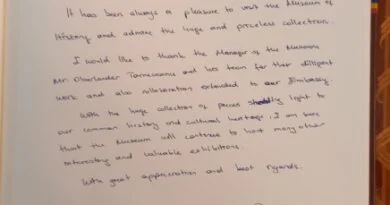 It has been always a pleasure to visit the Museum of
History and admire the huge and priceless collection.
I would like to thank the Manager of the Museum
Mr. and his team for their diligent
work and also collaboration extended to our Embassy.
With the huge collection of pieces shedding light to
our common history and cultural heritage, I am sure
that the Museum will continue to host many other
interesting and valuable exhibitions.
With great appreciation and best regards.